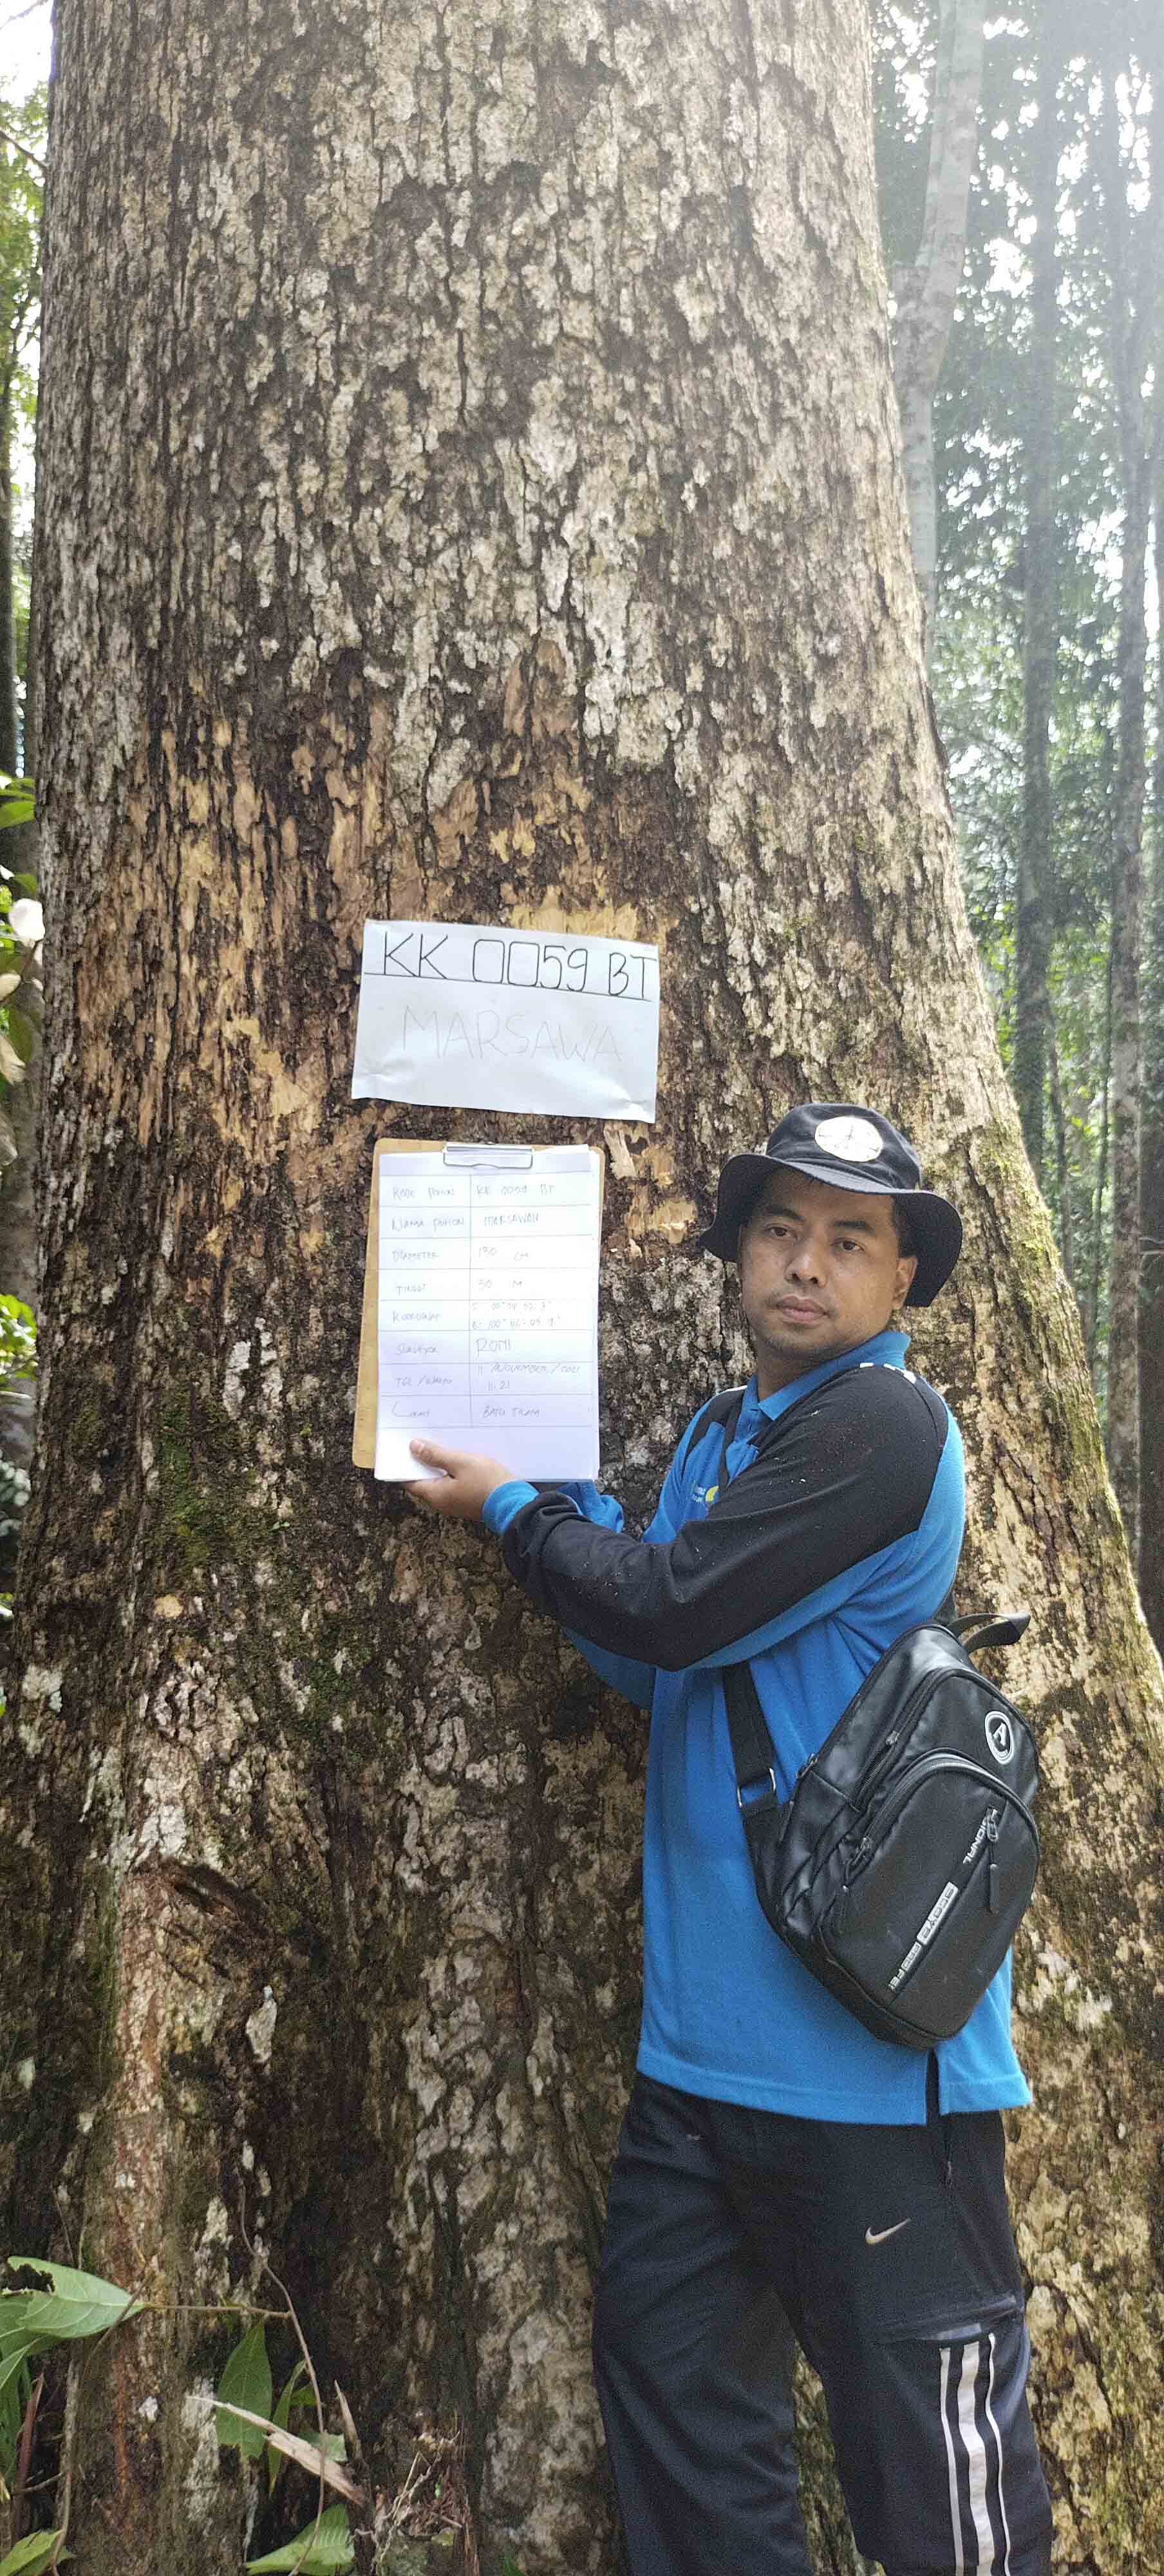 KK 0059 BT
MARSAWA
KODE POHON KK 0059 BT
NAMA POHON MARSAWAH
DIAMETER 130 CM
TINGGI 50 M
KOORDINAT
Surveyor ROMI
TGL / WAKTU 11 / NOVEMBER / 2021
11.21
Lokasi BATU
A